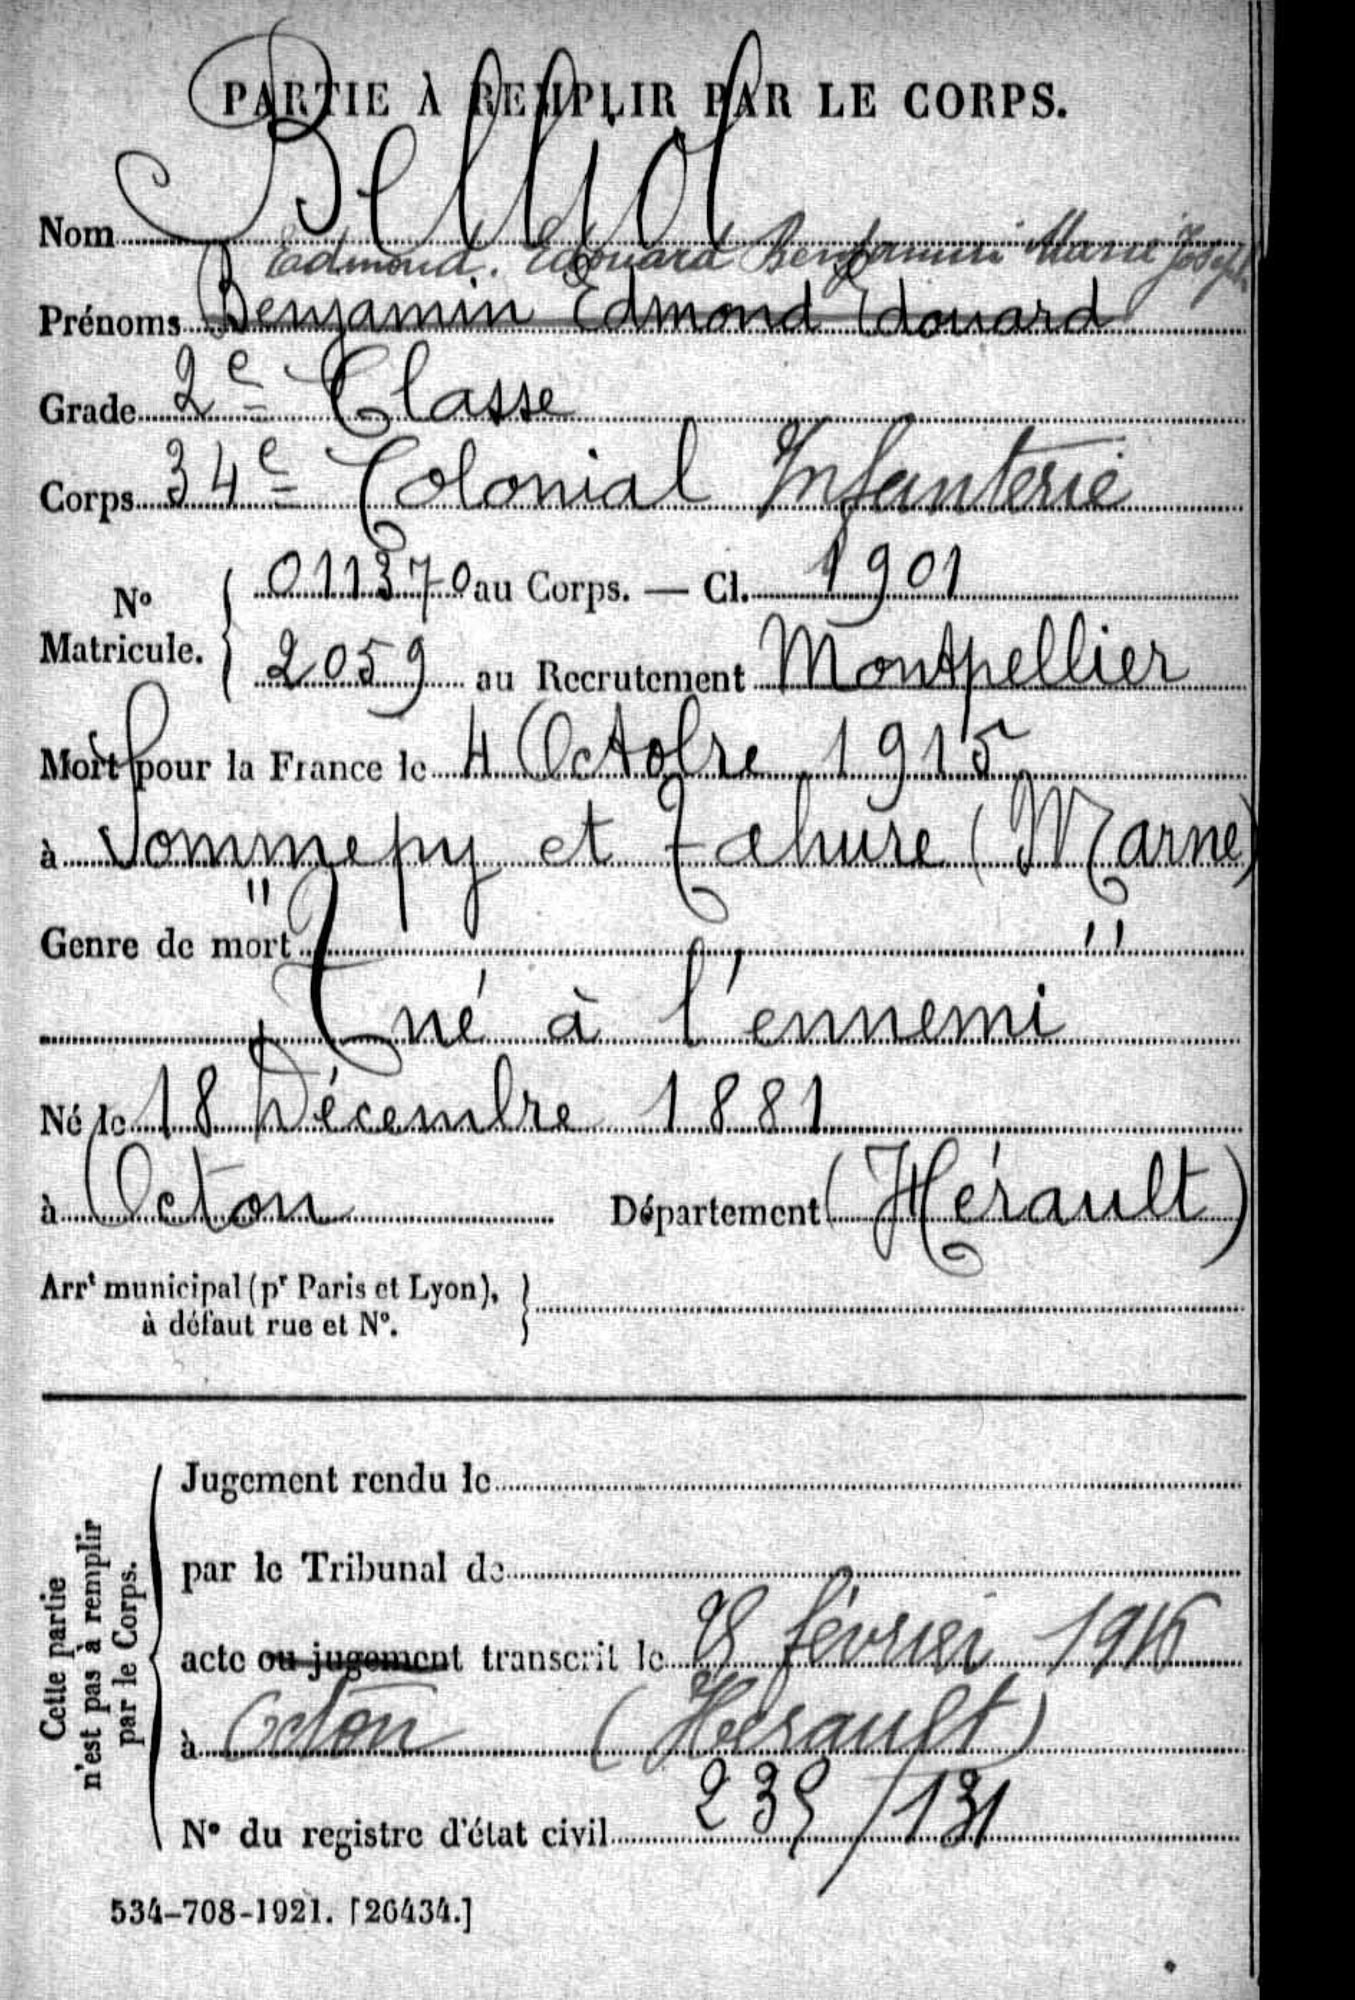 PARTIE À REMPLIR PAR LE CORPS.
Nom Belliol
Edmond. Edouard Benjamin Marie Joseph
Prénoms Benjamin Edmond Edouard
Grade 2e Classe
Corps 34e Colonial Infanterie
No Matricule. { 011370 au Corps. — Cl. 1901
2059 au Recrutement Montpellier
Mort pour la France le 4 Octobre 1915
à Sommepy et Tahure (Marne)
Genre de mort " "
Tué à l'ennemi
Né le 18 Décembre 1881
à Octon Département (Hérault)
Arrt municipal (pr Paris et Lyon), }
à défaut rue et No.
Cette partie
n'est pas à remplir
par le Corps.
Jugement rendu le
par le Tribunal de
acte ou jugement transcrit le février
à Octon (Hérault)
No du registre d'état civil /131
534-708-1921. [26434.]